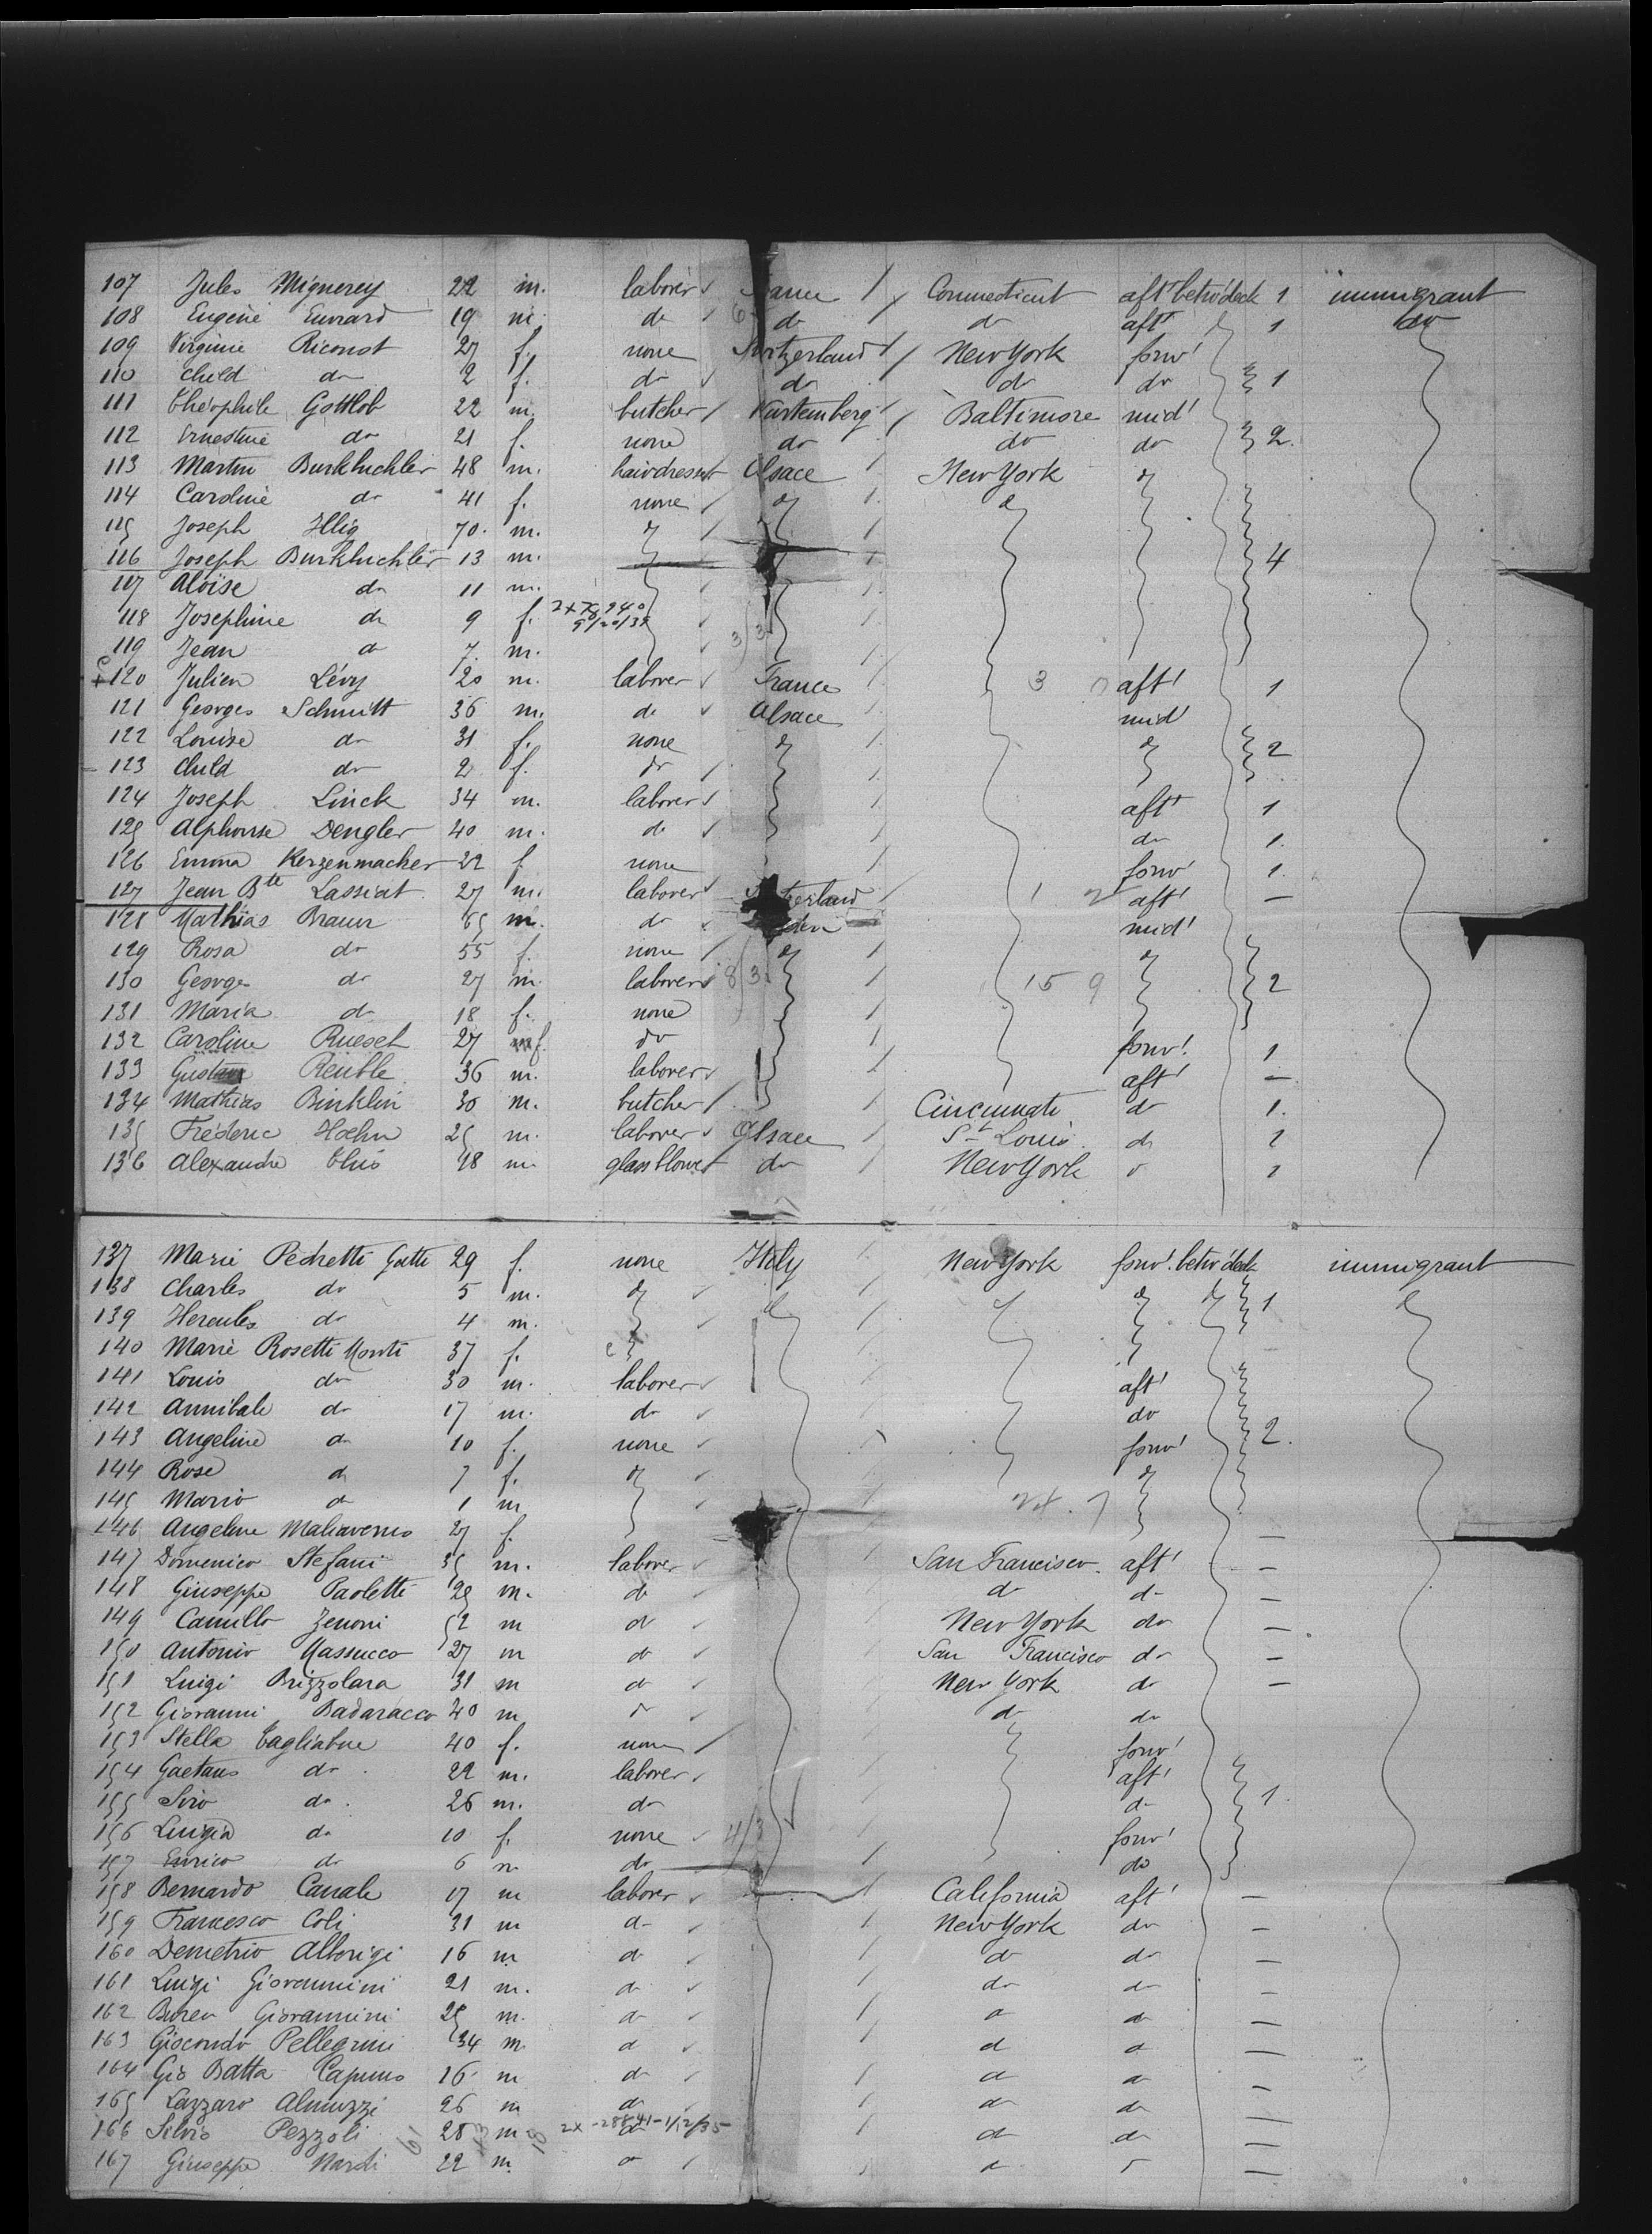 107 Jules Mignerey 22 m. laborer France Connecticut aft betw' deck 1 immigrant
108 Eugène Euvrard 19 m. do do do aft 1 do
109 Virginie Riconot 27 f. none Switzerland New York forw'
110 child do 2 f. do do do do 1
111 Théophile Gottlob 22 m. butcher Wurtemberg Baltimore mid'
112 Ernestine do 21 f. none do do do 2.
113 Martin Burkbuchler 48 m. hairdresser Alsace New York
114 Caroline do 41 f. none
115 Joseph Illig 70. m.
116 Joseph Burkbuchler 13 m. 4
117 Aloïse do 11 m.
118 Josephine do 9 f.
119 Jean do 7. m.
120 Julien Lévy 20 m. laborer France 3 aft' 1
121 Georges Schmitt 36 m. do Alsace mid'
122 Louise do 31 f. none 2
123 child do 2 f. do
124 Joseph Linck 34 m. laborer aft' 1
125 Alphonse Dengler 40 m. do do 1.
126 Emma Kerzenmacher 22 f. none forw' 1.
127 Jean Bte Lassiat 27 m. laborer aft' —
128 Mathias Braun 65 m. do mid'
129 Rosa do 55 f. none
130 George do 27 m. laborer 8/3 15 9 2
131 Maria do 18 f. none
132 Caroline Ruesch 27 f. do forw'. 1
133 Gustave Reuble 36 m. laborer aft' —
134 Mathias Binklin 30 m. butcher Cincinnati do 1.
135 Fréderic Hoehn 25 m. laborer Alsace St Louis do 1
136 Alexandre 18 m. glassblower do New York 1
137 Marie Pedretti Gatti 29 f. none Italy New York forw'. betw' deck immigrant
138 Charles do 5 m. 1
139 Hercules do 4 m.
140 Marie Rosetti Monti 37 f.
141 Louis do 30 m. laborer aft'
142 Annibale do 17 m. do do
143 Angeline do 10 f. none forw' 2.
144 Rose do 7 f.
145 Mario do 1 m
146 Angeline Maliaverno 27 f. —
147 Domenico Stefani 35 m. laborer San Francisco. aft' —
148 Giuseppe Paoletti 25 m. do do do —
149 Camillo Zenoni 52 m do New York do —
150 Antonio Massucco 27 m do San Francisco do —
151 Luigi Brizzolara 31 m do New York do —
152 Giovanni Badaracco 40 m do do do
153 Stella Tagliabue 40 f. none forw'
154 Gaetano do 22 m. laborer aft'
155 Siro do 26 m. do do 1.
156 Luigia do 10 f. none 4/3 forw'
157 Enrico do 6 m do do
158 Bernardo Canale 17 m laborer California aft' —
159 Francesco Coli 31 m do New York do —
160 Demetrio Alborigi 16 m do do do —
161 Luigi Giovannini 21 m. do do do —
162 Giovannini 25 m. do do do —
163 Giocondo Pellegrini 34 m. do do do —
164 Gio Batta Capurro 16 m do do do —
165 Lazzaro Almuzzi 26 m do do do —
166 Silvio Pezzoli 28 m do do do —
167 Giuseppe Nardi 22 m. do do —